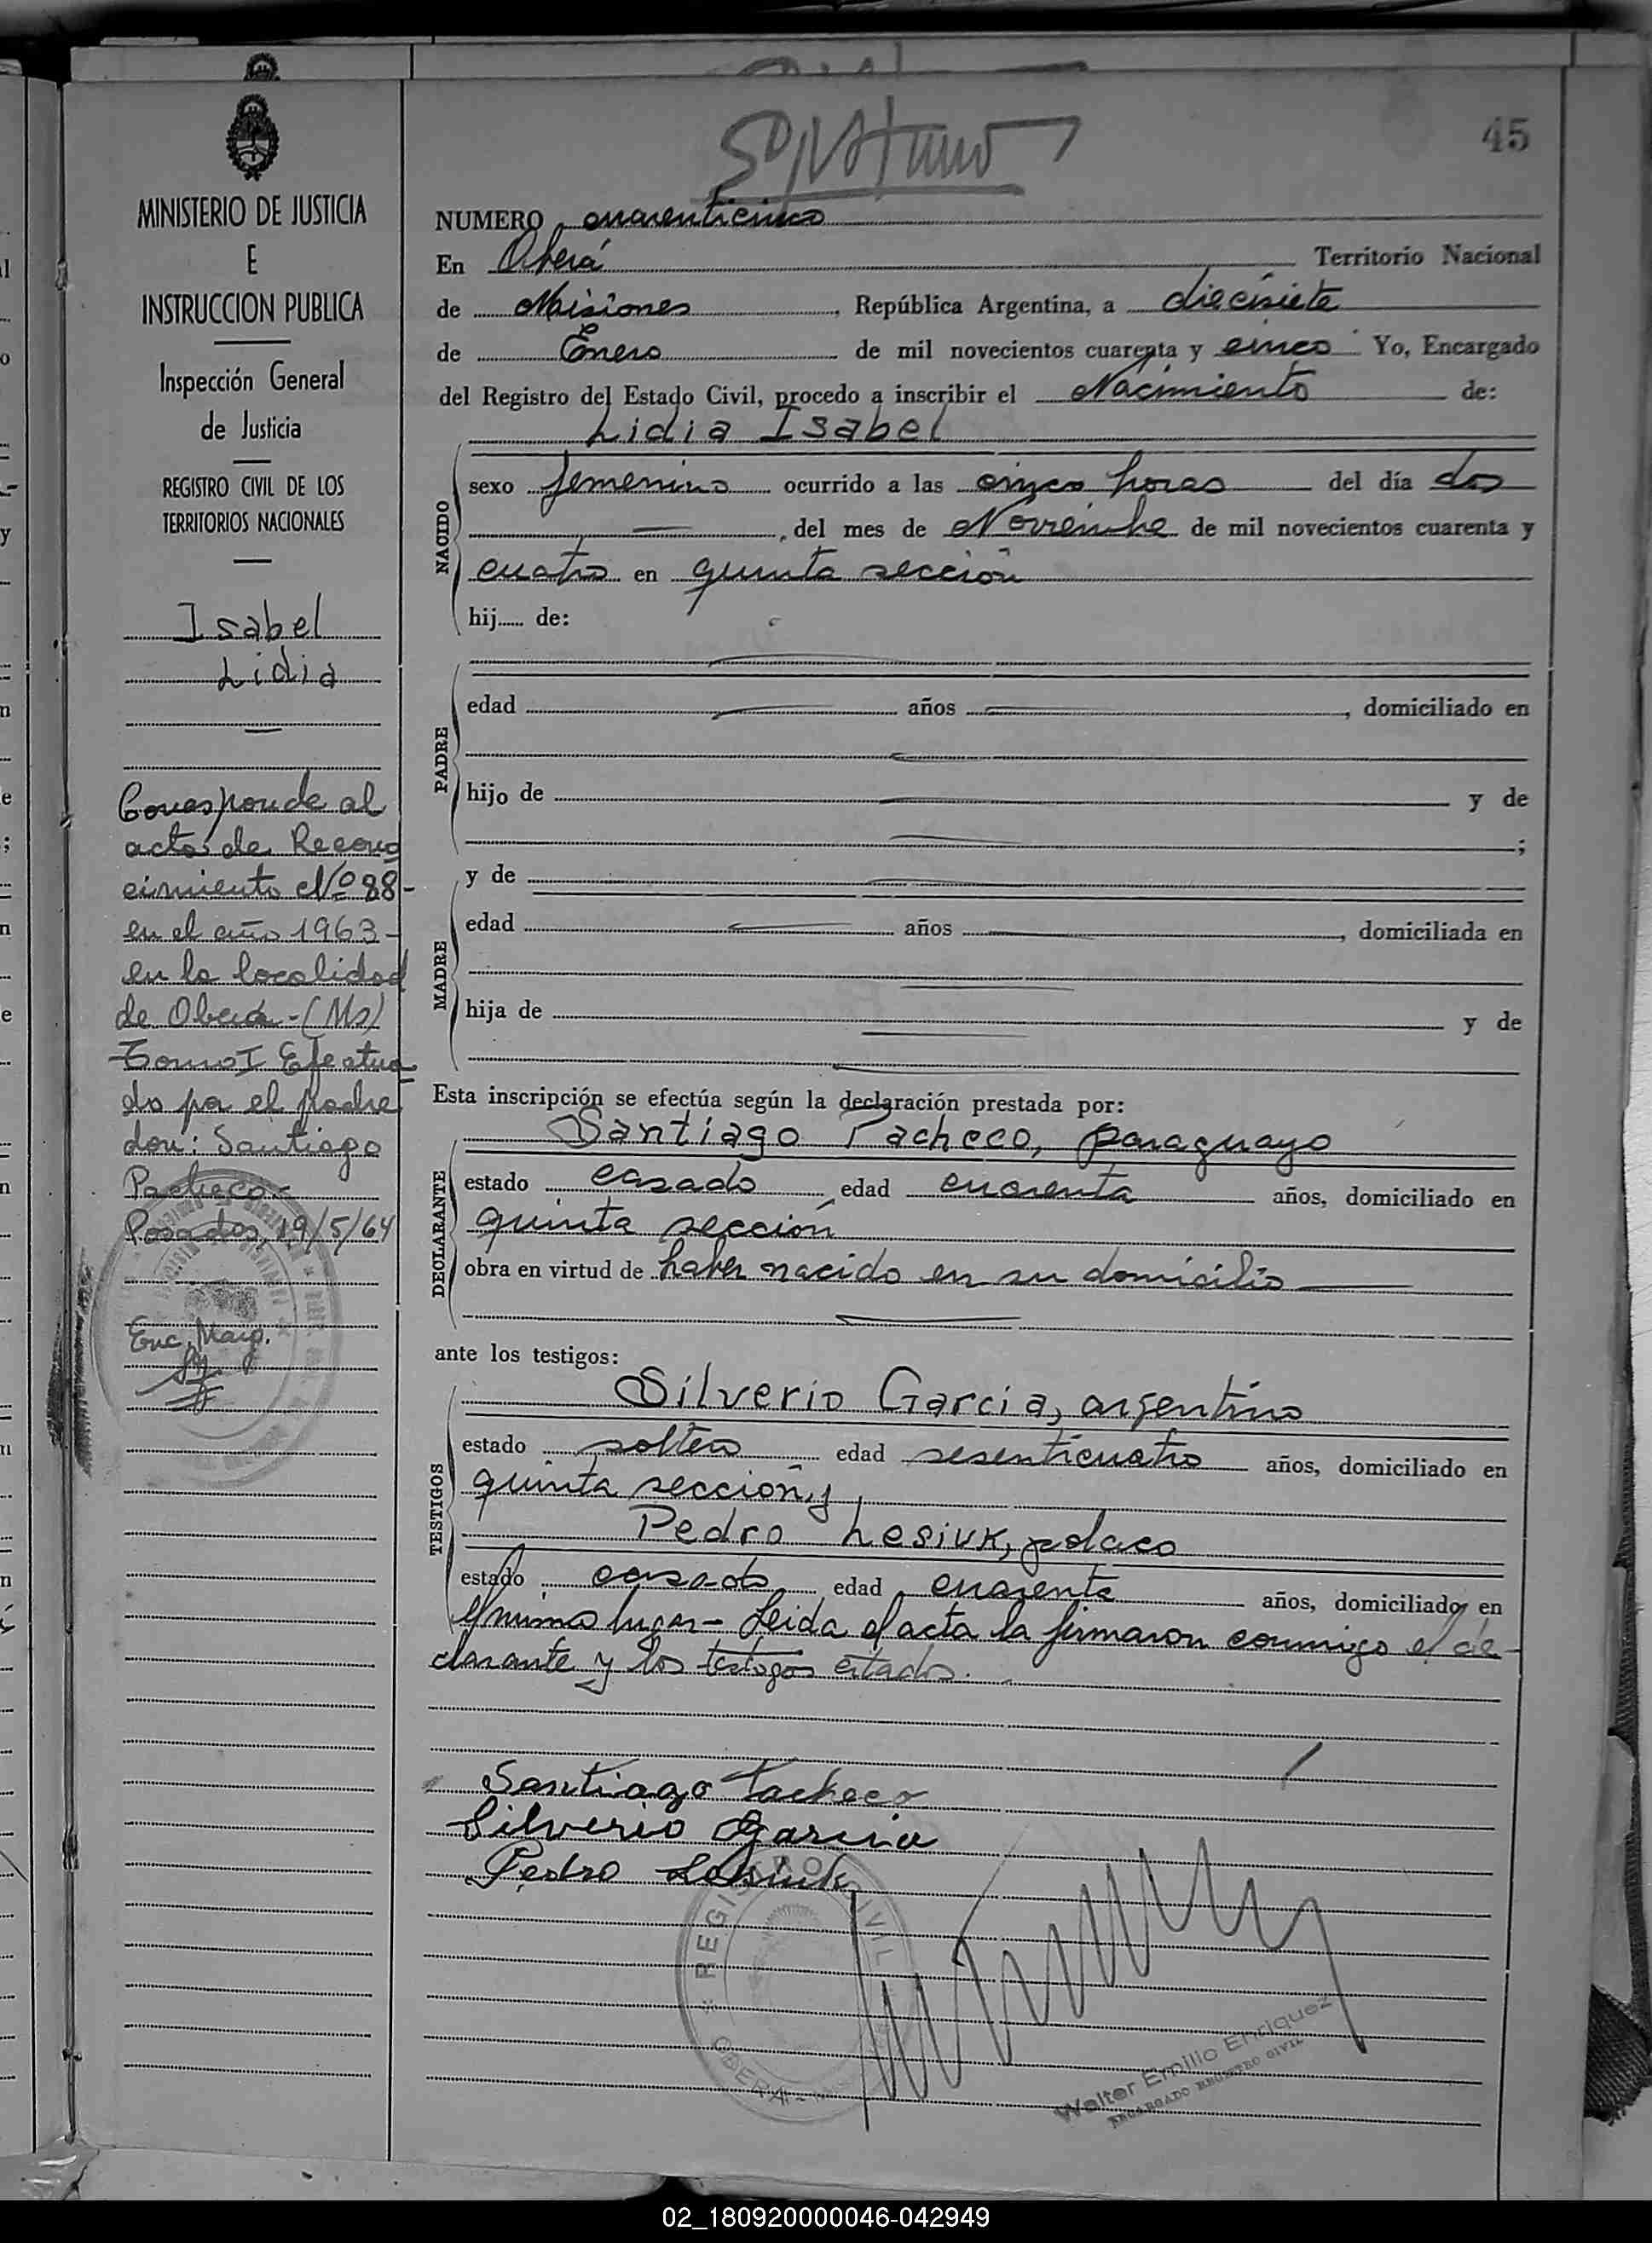 45
MINISTERIO DE JUSTICIA
E
INSTRUCCION PUBLICA
Inspección General
de Justicia
REGISTRO CIVIL DE LOS
TERRITORIOS NACIONALES
Isabel
Lidia
Corresponde al
acta de Recono
cimiento Nº 88-
en el año 1963-
en la localidad
de Oberá-(Ms)
Tomo I Efectua
do por el padre
don: Santiago
Pacheco.-
Posadas, 19/5/64
Enc. Marg.
NUMERO cuarenticinco
En Oberá Territorio Nacional
de Misiones, República Argentina, a diecisiete
de Enero de mil novecientos cuarenta y cinco Yo, Encargado
del Registro del Estado Civil, procedo a inscribir el Nacimiento de:
Lidia Isabel
NACIDO
sexo femenino ocurrido a las cinco horas del día dos
, del mes de Noviembre de mil novecientos cuarenta y
cuatro en quinta sección
hij..... de:
PADRE
edad años , domiciliado en
hijo de y de
;
y de
MADRE
edad años , domiciliada en
hija de y de
Esta inscripción se efectúa según la declaración prestada por:
Santiago Pacheco, paraguayo
DECLARANTE
estado casado, edad cuarenta años, domiciliado en
quinta sección
obra en virtud de haber nacido en su domicilio
ante los testigos:
Silverio Garcia, argentino
TESTIGOS
estado soltero edad sesenticuatro años, domiciliado en
quinta sección, y
Pedro Lesiuk, polaco
estado casado edad cuarenta años, domiciliado en
el mismo lugar- Leida el acta la firmaron conmigo el de-
clarante y los testigos citados.
Santiago Pacheco
Silverio Garcia
Pedro Lesiuk
REGISTRO CIVIL
OBERA
Walter Emilio Enriquez
ENCARGADO REGISTRO CIVIL
02_180920000046-042949